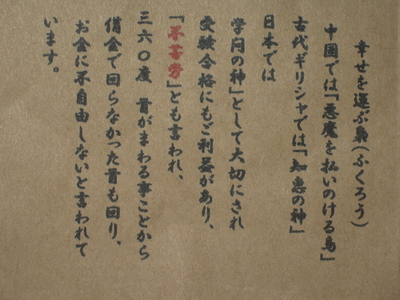 幸せを運ぶ梟(ふくろう)
中国では「悪魔を払いのける鳥」
古代ギリシャでは「知恵の神」
日本では
学問の神」として大切にされ
受験合格にもご利益があり、
「不苦労」とも言われ、
三六〇度 首がまわる事ことから
借金で回らなかった首も回り、
お金に不自由しないと言われて
います。